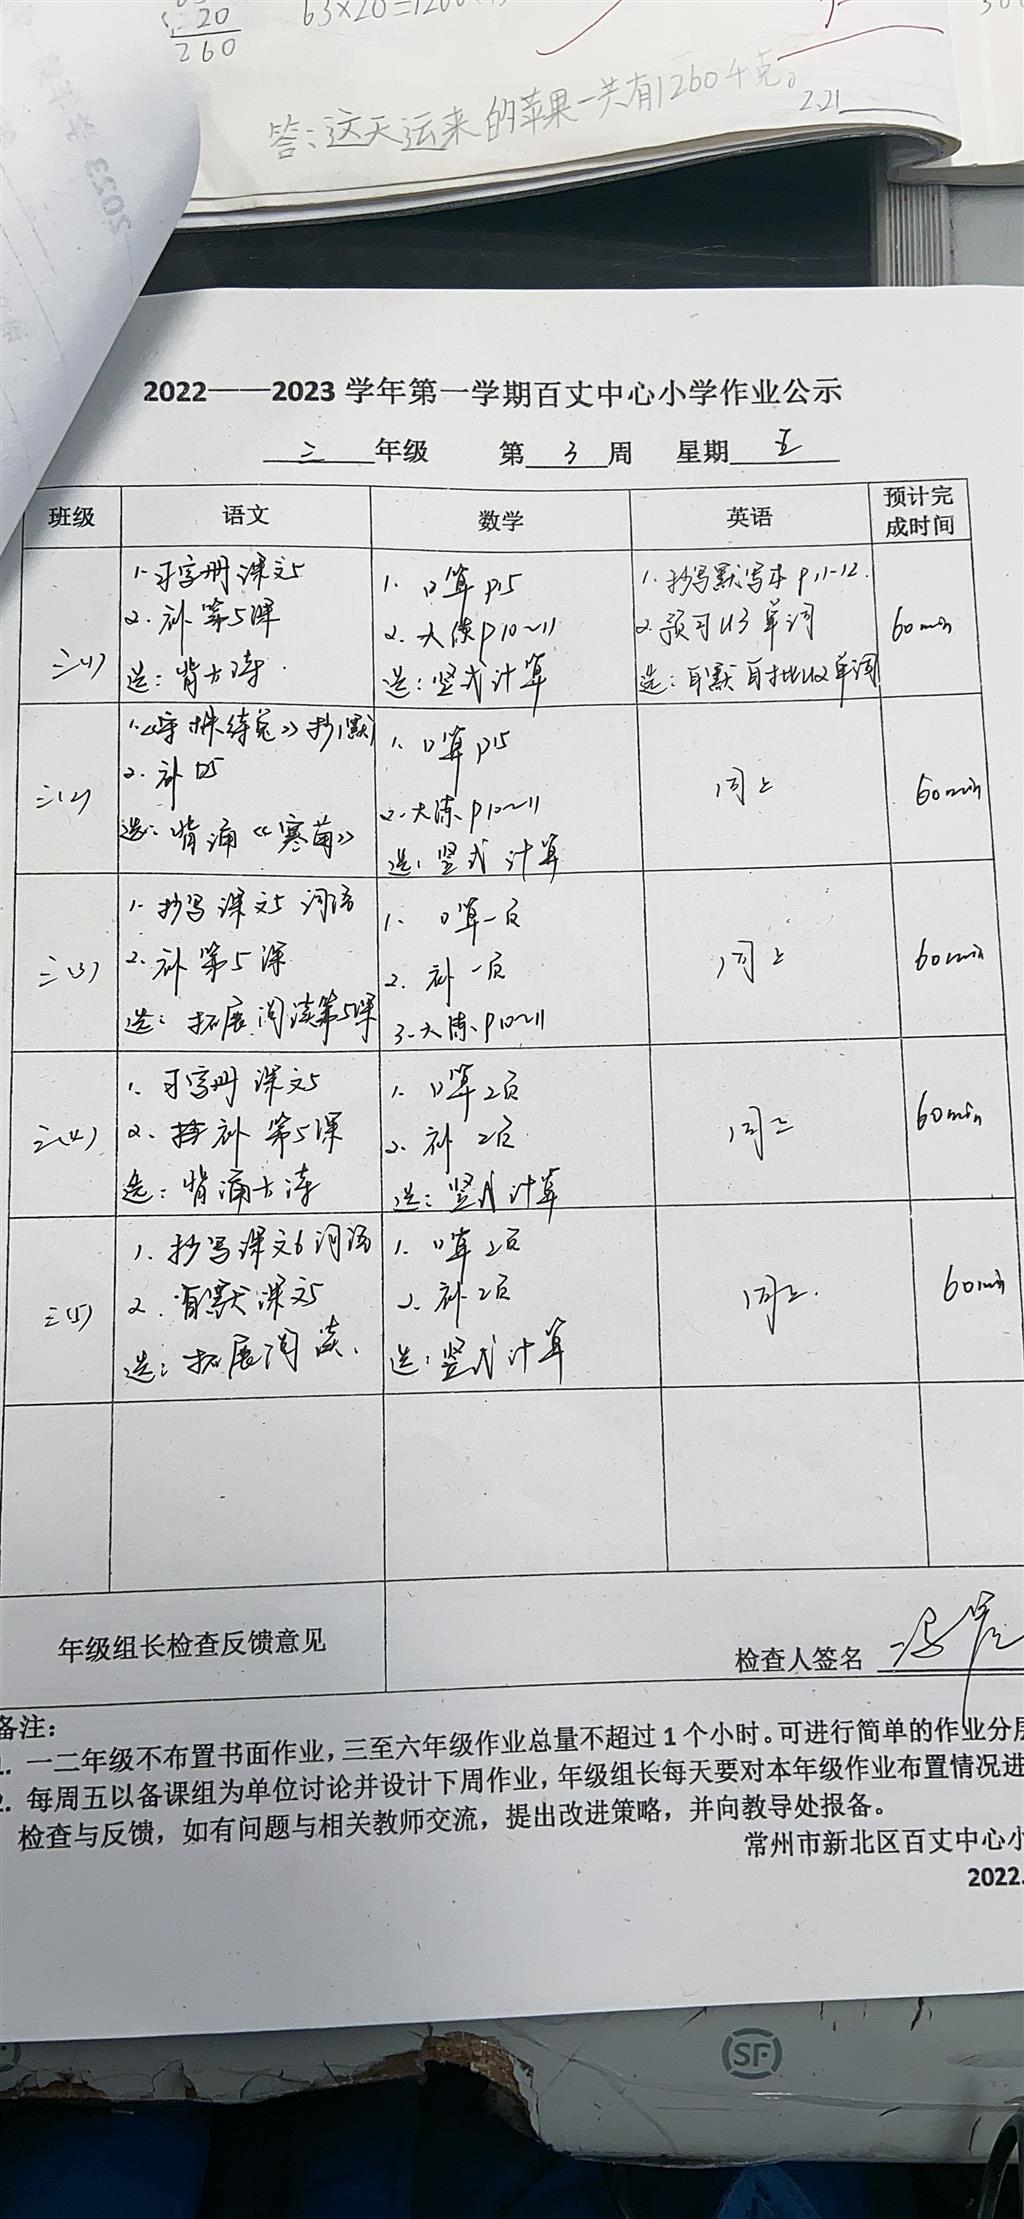 20
260
63×20=1260
答:这天运来的苹果一共有1260千克。
2.21
2023
2022——2023学年第一学期百丈中心小学作业公示
三 年级 第 3 周 星期 五
班级 语文 数学 英语 预计完成时间
三(1)
1.习字册 课文5
2.补第5课
选:背古诗.
1.口算P15
2.大练P10~11
选:竖式计算
1.抄写默写本P11-12.
2.预习U3单词
选:自默自批U2单词
60min
三(2)
1.《守株待兔》抄(默)
2.补
选:背诵《寒菊》
1.口算P15
2.大练P10~11
选:竖式计算
同上
60min
三(3)
1.抄写课文5词语
2.补第5课
选:拓展阅读第5课
1.口算一页
2.补一页
3.大练P10~11
同上
60min
三(4)
1.习字册课文5
2.补第5课
选:背诵古诗
1.口算2页
2.补2页
选:竖式计算
同上
60min
三(5)
1.抄写课文6词语
2.默课文5
选:拓展阅读.
1.口算2页
2.补2页
选:竖式计算
同上.
60min
年级组长检查反馈意见
检查人签名
备注:
1. 一二年级不布置书面作业,三至六年级作业总量不超过1个小时。可进行简单的作业分层
2. 每周五以备课组为单位讨论并设计下周作业,年级组长每天要对本年级作业布置情况进
检查与反馈,如有问题与相关教师交流,提出改进策略,并向教导处报备。
常州市新北区百丈中心小
2022.
SF